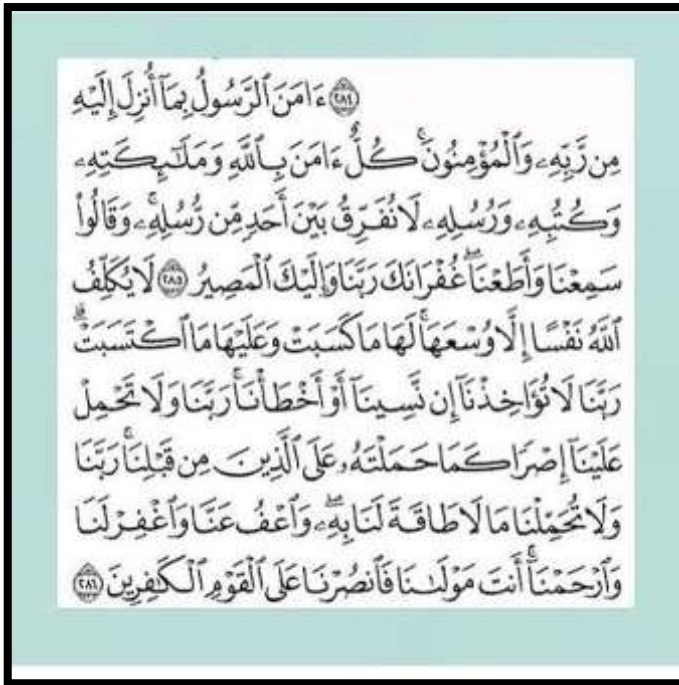 ﴿٢٨٤﴾ ءَامَنَ ٱلرَّسُولُ بِمَآ أُنزِلَ إِلَيْهِ
مِن رَّبِّهِۦ وَٱلْمُؤْمِنُونَۚ كُلٌّ ءَامَنَ بِٱللَّهِ وَمَلَٰٓئِكَتِهِۦ
وَكُتُبِهِۦ وَرُسُلِهِۦ لَا نُفَرِّقُ بَيْنَ أَحَدٍ مِّن رُّسُلِهِۦۚ وَقَالُوا۟
سَمِعْنَا وَأَطَعْنَاۖ غُفْرَانَكَ رَبَّنَا وَإِلَيْكَ ٱلْمَصِيرُ ﴿٢٨٥﴾ لَا يُكَلِّفُ
ٱللَّهُ نَفْسًا إِلَّا وُسْعَهَاۚ لَهَا مَا كَسَبَتْ وَعَلَيْهَا مَا ٱكْتَسَبَتْۗ
رَبَّنَا لَا تُؤَاخِذْنَآ إِن نَّسِينَآ أَوْ أَخْطَأْنَاۚ رَبَّنَا وَلَا تَحْمِلْ
عَلَيْنَآ إِصْرًا كَمَا حَمَلْتَهُۥ عَلَى ٱلَّذِينَ مِن قَبْلِنَاۚ رَبَّنَا
وَلَا تُحَمِّلْنَا مَا لَا طَاقَةَ لَنَا بِهِۦۖ وَٱعْفُ عَنَّا وَٱغْفِرْ لَنَا
وَٱرْحَمْنَآۚ أَنتَ مَوْلَىٰنَا فَٱنصُرْنَا عَلَى ٱلْقَوْمِ ٱلْكَٰفِرِينَ ﴿٢٨٦﴾